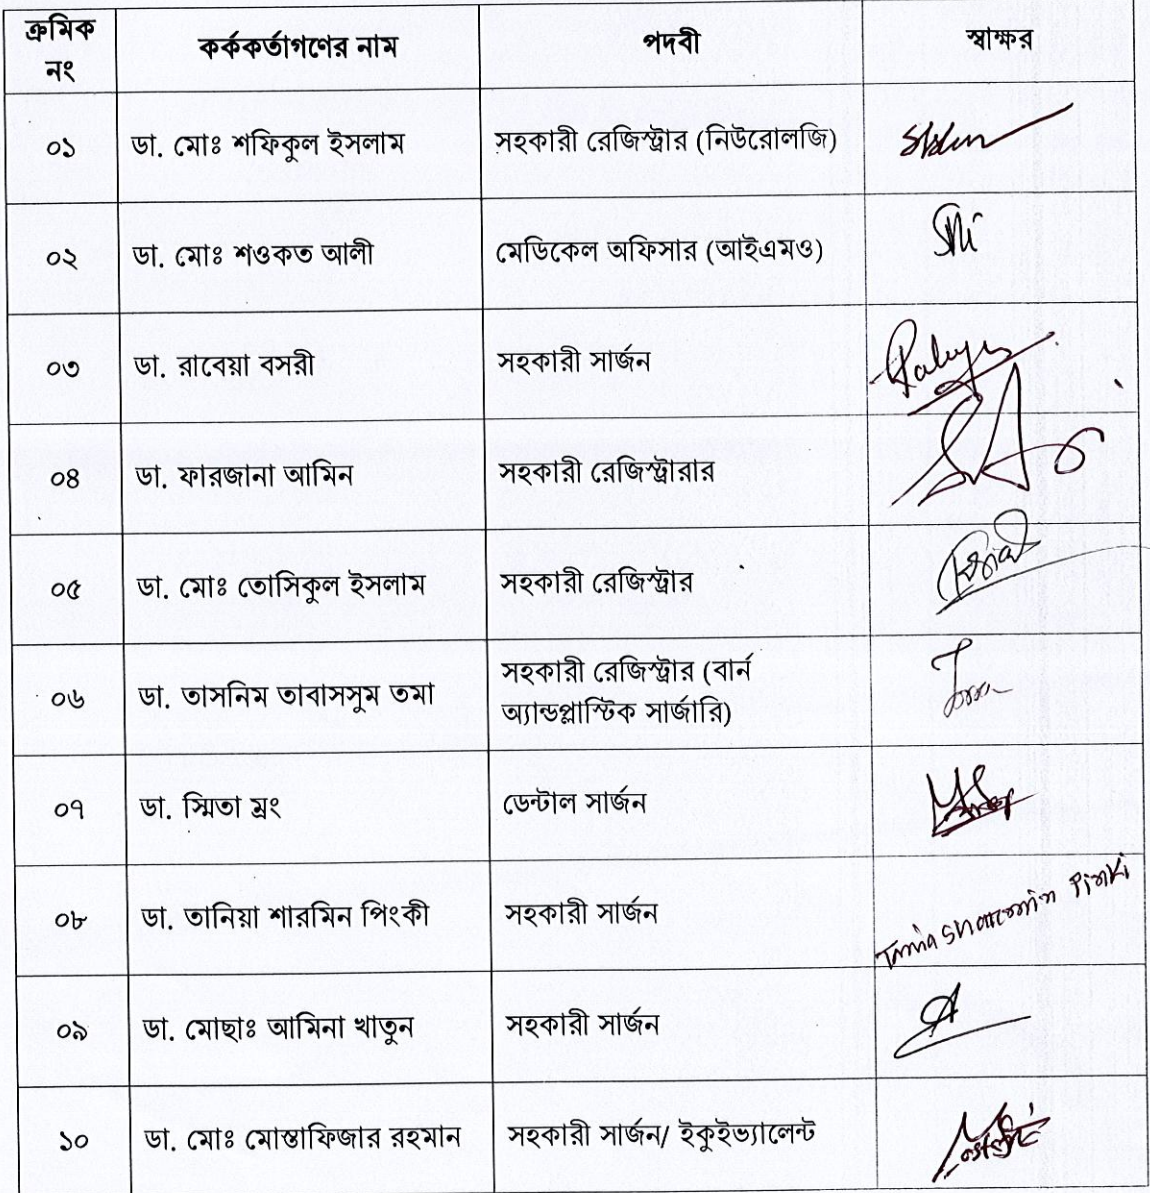 ক্রমিক নং কর্ককর্তাগণের নাম পদবী স্বাক্ষর
০১ ডা. মোঃ শফিকুল ইসলাম সহকারী রেজিস্ট্রার (নিউরোলজি)
০২ ডা. মোঃ শওকত আলী মেডিকেল অফিসার (আইএমও)
০৩ ডা. রাবেয়া বসরী সহকারী সার্জন
০৪ ডা. ফারজানা আমিন সহকারী রেজিস্ট্রারার
০৫ ডা. মোঃ তোসিকুল ইসলাম সহকারী রেজিস্ট্রার
০৬ ডা. তাসনিম তাবাসসুম তমা সহকারী রেজিস্ট্রার (বার্ন
অ্যান্ডপ্লাস্টিক সার্জারি)
০৭ ডা. স্মিতা ম্রং ডেন্টাল সার্জন
০৮ ডা. তানিয়া শারমিন পিংকী সহকারী সার্জন Tania Sharmin Pinki
০৯ ডা. মোছাঃ আমিনা খাতুন সহকারী সার্জন
১০ ডা. মোঃ মোস্তাফিজার রহমান সহকারী সার্জন/ ইকুইভ্যালেন্ট